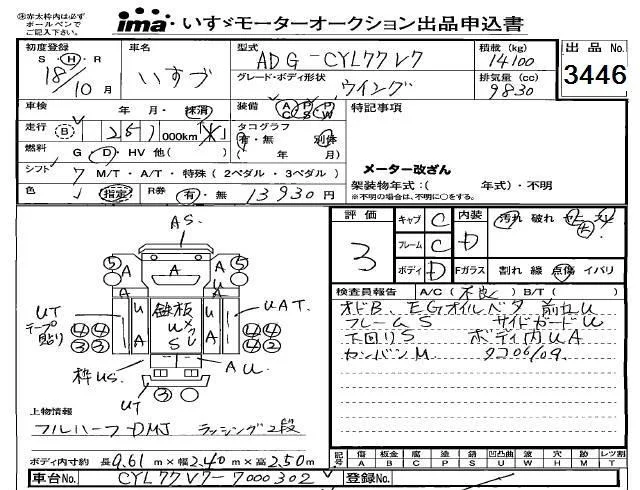 ※赤太枠内は必ず
ボールペンで
ご記入下さい。
ima いすゞモーターオークション出品申込書
初度登録
S・H・R
18年 10月
車名
いすゞ
型式
ADG-CYL77V7
グレード・ボディ形状
ウイング
積載 (kg)
14100
排気量 (cc)
9830
出品No.
3446
車検 年・月・抹消
装備 AC PS PW
特記事項
走行 B 251 000km
タコグラフ
有・無 別体
( 年 月)
燃料 G・D・HV 他( )
シフト 7 M/T・A/T・特殊 (2ペダル・3ペダル)
メーター改ざん
架装物年式:( 年式)・不明
※不明の場合は、不明に○をする。
色 指定 R券 有・無 13930円
評価
3
キャブ C
フレーム C
ボディ D
内装 D
Fガラス
汚れ 破れ
割れ 線 点傷 イバリ
検査員報告 A/C(不良) B/T( )
オドB、EGオイルベタ 前廻U
フレームS サイドガードU
下回りS ボディ内UA
カンバンM タコ06/09.
AS.
5 A A A 5
UT
テープ
貼り
A U 鉄板 U A
UメクSU
UAT.
4 4 4 4
3 3 4 2
枠US. AU
UT 3 3
上物情報
フルハーフ-DMJ ラッシング2段
ボディ内寸約 長9.61m×幅2.40m×高2.50m
記号 傷 板金 腐 塗 錆 凹凸曲 ワイパー 穴 跡 レツ割
A B C P S U W H M T
車台No. CYL77V7-7000302 登録No.